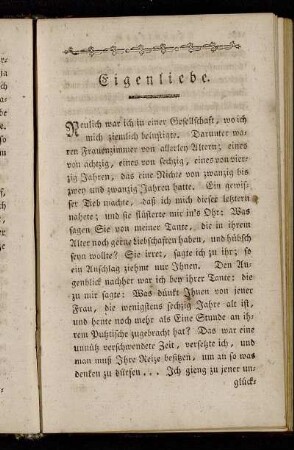 Eigenliebe.
Neulich war ich in einer Gesellschaft, wo ich
mich ziemlich belustigte. Darunter wa-
ren Frauenzimmer von allerley Altern; eines
von achtzig, eines von sechzig, eines von vier-
zig Jahren, das eine Nichte von zwanzig bis
zwey und zwanzig Jahren hatte. Ein gewis-
ser Tieb machte, daß ich mich dieser letztern
nahete; und sie flüsterte mir in's Ohr: Was
sagen Sie von meiner Tante, die in ihrem
Alter noch gerne Liebschaften haben, und hübsch
seyn wollte? Sie irret, sagte ich zu ihr; so
ein Anschlag ziehme nur Ihnen. Den Au-
genblick nachher war ich bey ihrer Tante; die
zu mir sagte: Was dünkt Ihnen von jener
Frau, die wenigstens sechzig Jahre alt ist,
und heute noch mehr als Eine Stunde an ih-
rem Putztische zugebracht hat? Das war eine
unnütz verschwendete Zeit, versetzte ich, und
man muß Ihre Reize besitzen, um an so was
denken zu dürfen... Ich gieng zu jener un-
glück-